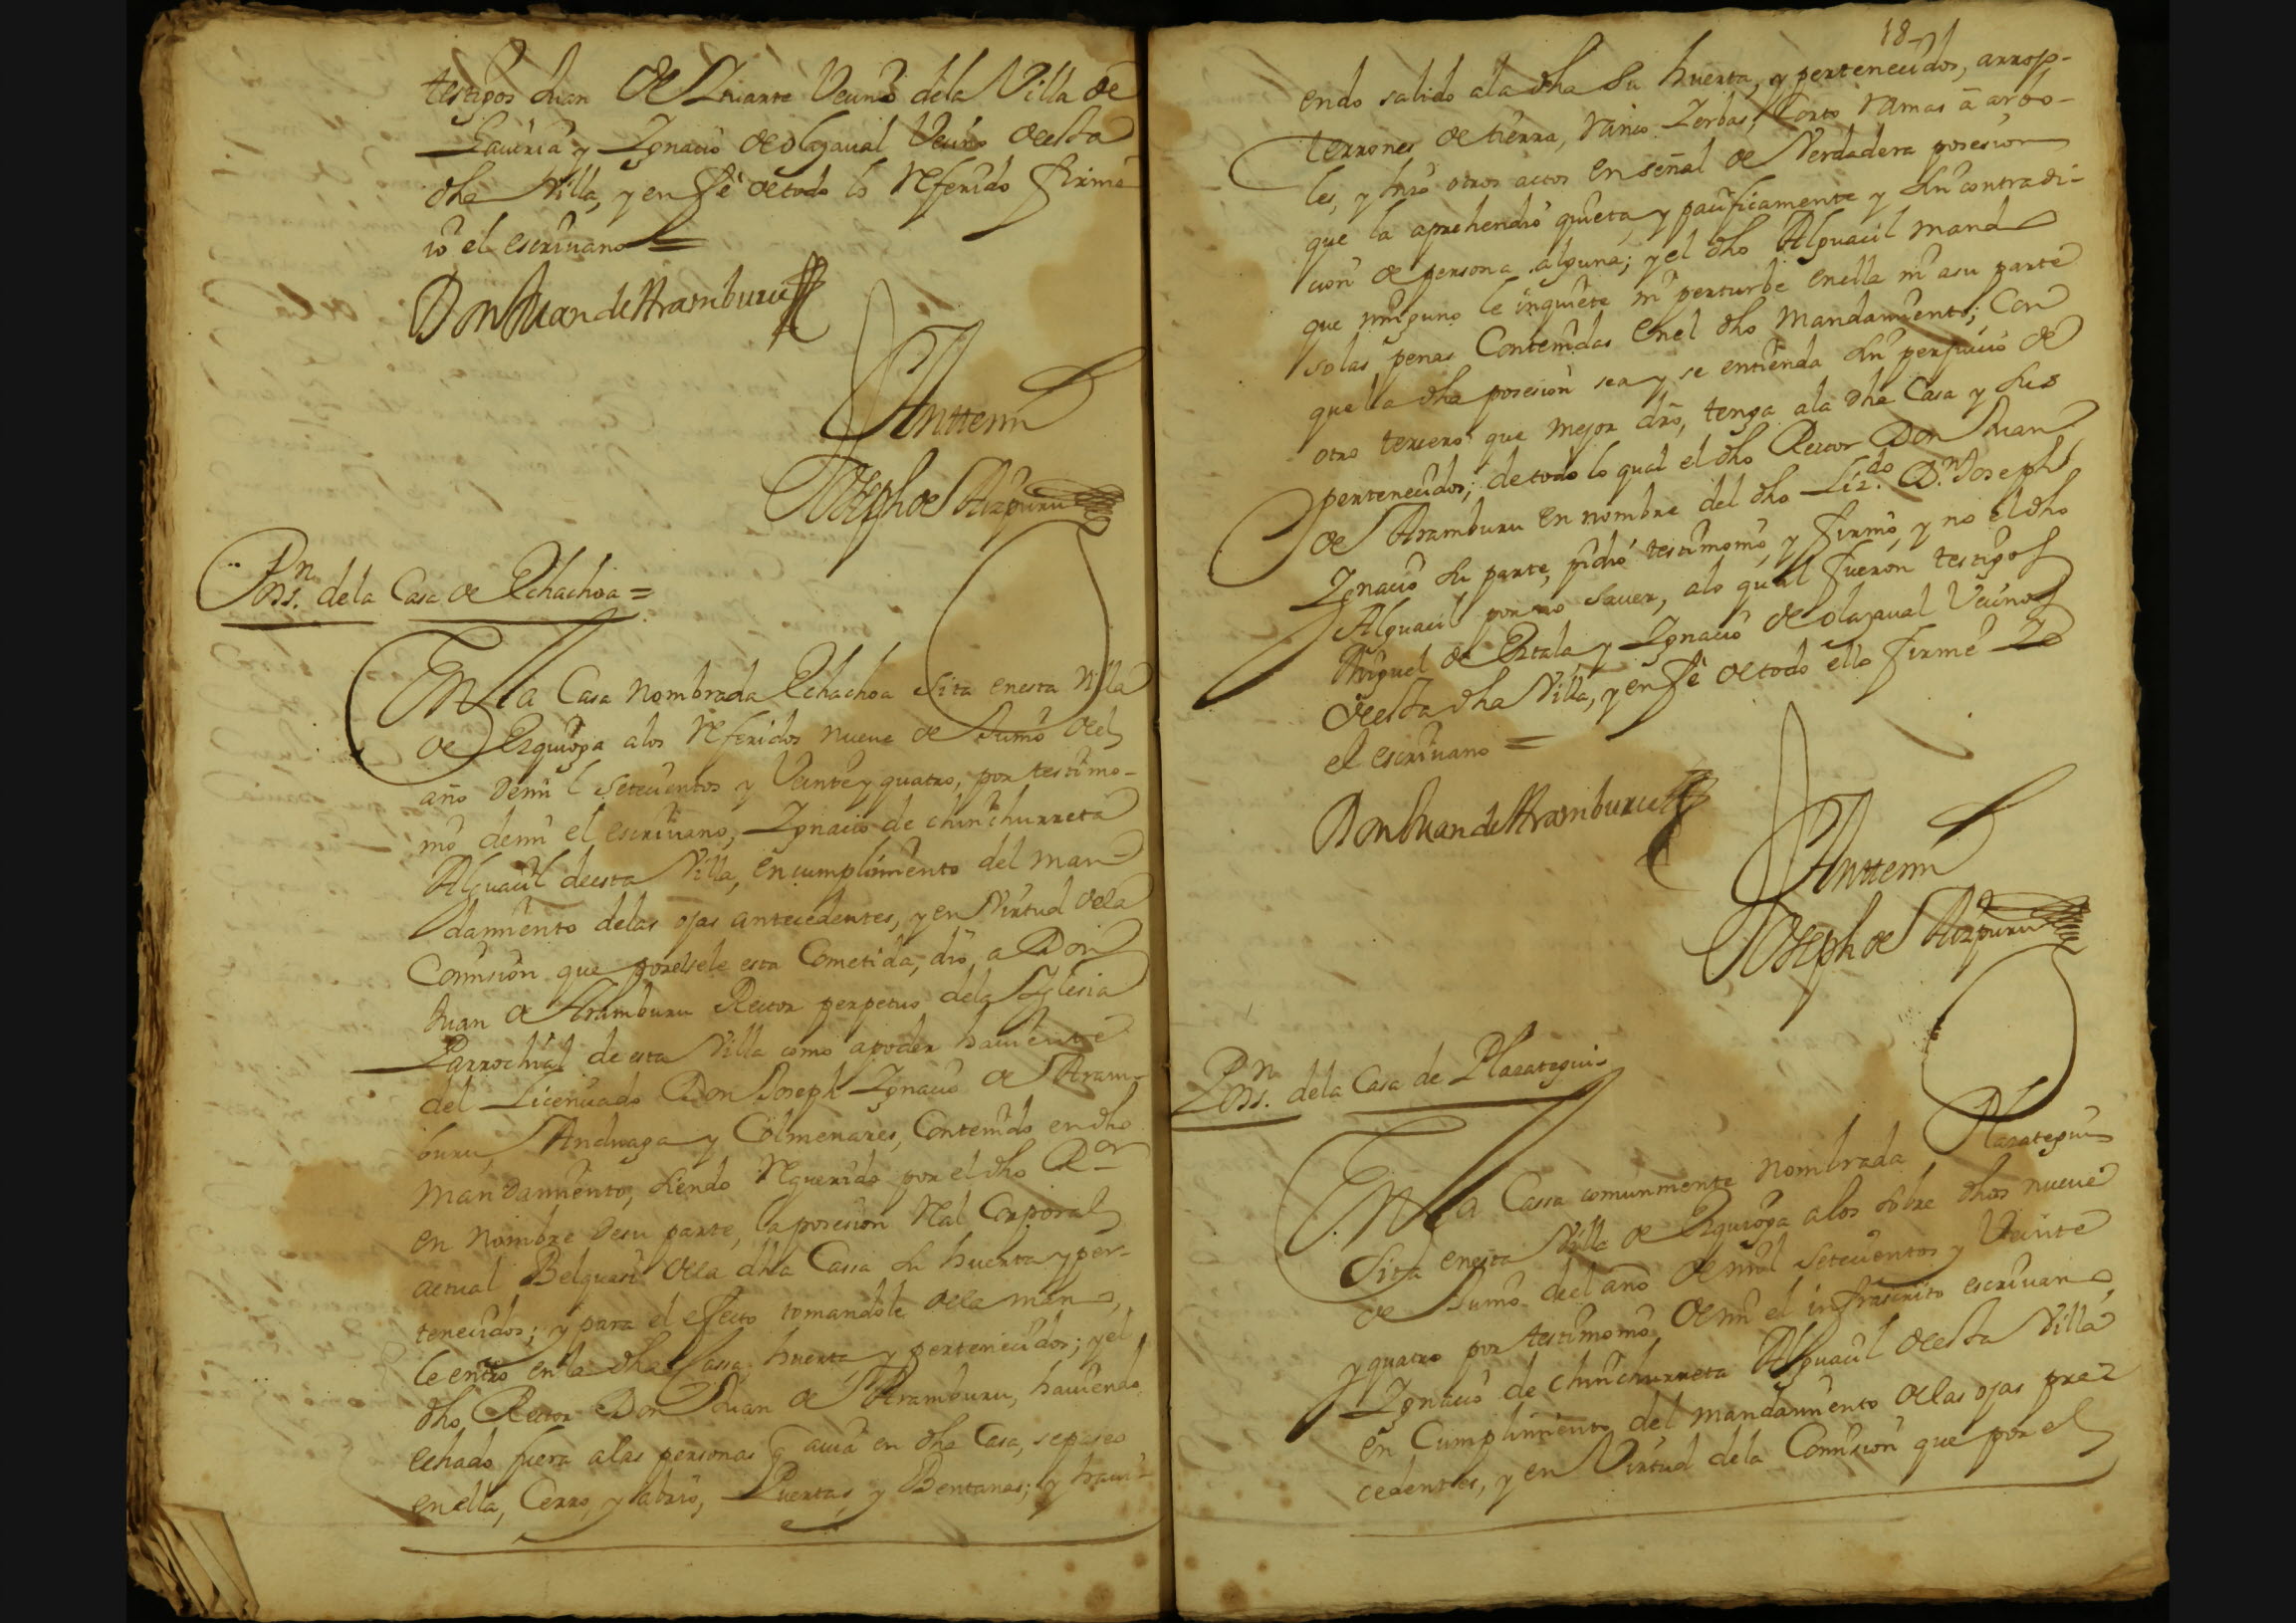 testigos Juan de Lriarte Vecino dela Villa de
Gaviria y Ignacio de olazaval Vecino de esta
dha Villa, y en fê de todo lo Referido firmé
io el escrivano =
Don Juan de Aramburu
Anttemi
Joseph de Aizpuru
Posson. dela Casa de Echachoa =
En la Casa nombrada Echachoa sita en esta Villa
de Ezquioga alos Referidos nueve de Junio del
año de mil setecientos y Veinte y quatro, por testimo-
nio de mi el escrivano, Ignacio de chinchurreta
Alguacil de esta Villa, en cumplimiento del man-
damiento delas ojas antecedentes, y en Virtud dela
Comision que por else le esta Cometida, dio a Don
Juan de Aramburu Rector perpetuo dela Iglesia
Parrochial de esta Villa como apoder haviente
del Licenciado Don Joseph Ignacio de Aram-
buru, Anduaga y Colmenares, Contenido en dho
mandamiento, siendo Requerido por el dho Ror
en nombre de su parte, la posesion Real Corporal
actual Belquasi dela dha Cassa su huerta y per-
tenecidos; y para el efecto tomandole dela mano,
le entro en la dha Cassa, huerta y pertenecidos; y el
dho Rector Don Juan de Aramburu, haviendo
echado fuera alas personas q̃ avia en dha Casa, se paseo
en ella, Cerro, y abrio, Puertas y Bentanas; y havi-
18
endo salido ala dha su huerta, y pertenecidos, arrojo
terrones de tierra, ranco Zerbas, Corto ramas â arbo-
les, y hizo otros actos en señal de Verdadera posesion
que la aprehendio quieta, y pacificamente y sin contradi-
cion de persona alguna; y el dho Alguacil mando
que ninguno le inquiete ni perturbe en ella ni asu parte
so las penas Contenidas en el dho mandamiento; Con
que la dha posesion sea y se entienda sin perjuicio de
otro tercero que mejor dro, tenga ala dha Casa y sus
pertenecidos; de todo lo qual el dho Rector Don Juan
de Aramburu en nombre del dho Lizdo. Dn. Joseph
Ignacio su parte, pidio testimonio, y firmo, y no el dho
Alguacil por no saver, alo qual fueron testigos
Miguel de Eztala y Ignacio de olazaval Vecinos
de esta dha Villa, y en fê de todo ello firmé Yo
el escrivano =
Don Juan de Aramburu
Anttemi
Joseph de Aizpuru
Posson. dela Casa de Plazategui =
En la Cassa comunmente nombrada Plazategui
sita en esta Villa de Ezquioga alos sobre dhos nueve
de Junio del año de mil setecientos y Veinte
y quatro por testimonio de mi el infrascrito escrivano,
Ignacio de chinchurreta Alguacil de esta Villa
en Cumplimiento del mandamiento delas ojas pre-
cedentes, y en Virtud dela Comision que por el